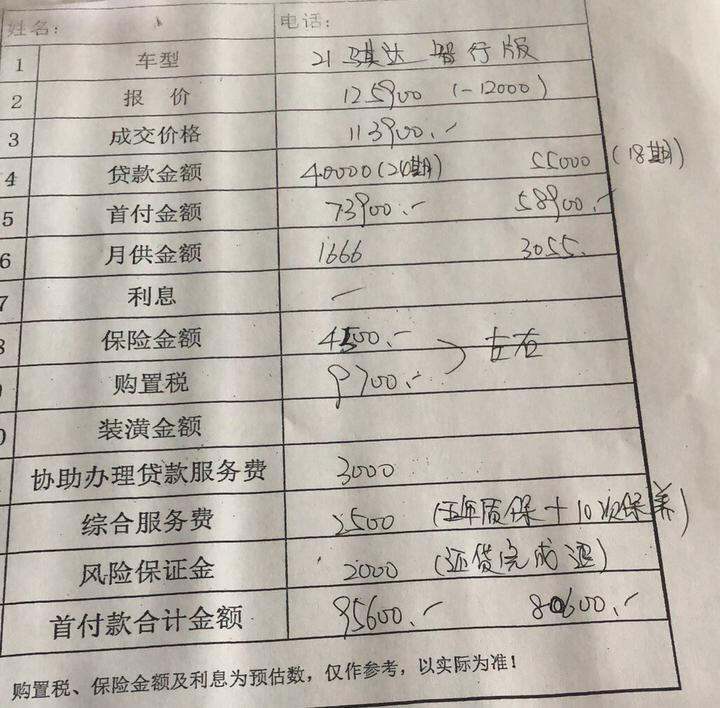 姓名： 电话：
1 车型 21 骐达 智行版
2 报 价 125900 (-12000)
3 成交价格 113900.-
4 贷款金额 40000(24期) 55000 (18期)
5 首付金额 73900.- 58900.-
6 月供金额 1666 3055.
7 利息 -
8 保险金额 4500.- 左右
购置税 9700.-
0 装潢金额
协助办理贷款服务费 3000
综合服务费 2500 (五年质保+10次保养)
风险保证金 2000 (还贷完成退)
首付款合计金额 95600.- 80600.-
购置税、保险金额及利息为预估数，仅作参考，以实际为准！